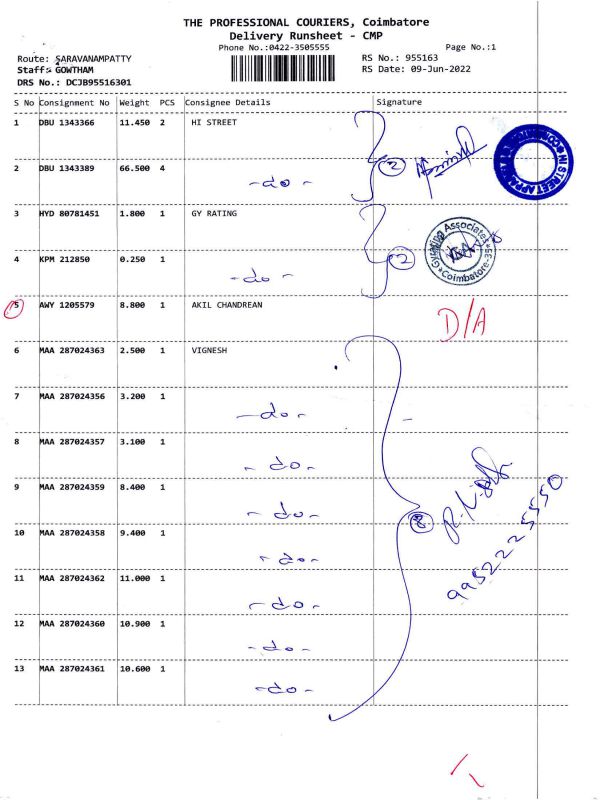 THE PROFESSIONAL COURIERS, Coimbatore
Delivery Runsheet - CMP
Phone No.:0422-3505555
Page No.:1
Route: SARAVANAMPATTY
RS No.: 955163
Staff: GOWTHAM
RS Date: 09-Jun-2022
DRS No.: DCJB95516301
S No Consignment No Weight PCS Consignee Details Signature
1 DBU 1343366 11.450 2 HI STREET
2 DBU 1343389 66.500 4
-do-
2
HI STREET
3 HYD 80781451 1.800 1 GY RATING
4 KPM 212850 0.250 1
-do-
2
Gyrating Associates
Coimbatore-35
5 AWY 1205579 8.800 1 AKIL CHANDREAN
D/A
6 MAA 287024363 2.500 1 VIGNESH
7 MAA 287024356 3.200 1
-do-
8 MAA 287024357 3.100 1
-do-
9 MAA 287024359 8.400 1
-do-
8
9952225550
10 MAA 287024358 9.400 1
-do-
11 MAA 287024362 11.000 1
-do-
12 MAA 287024360 10.900 1
-do-
13 MAA 287024361 10.600 1
-do-